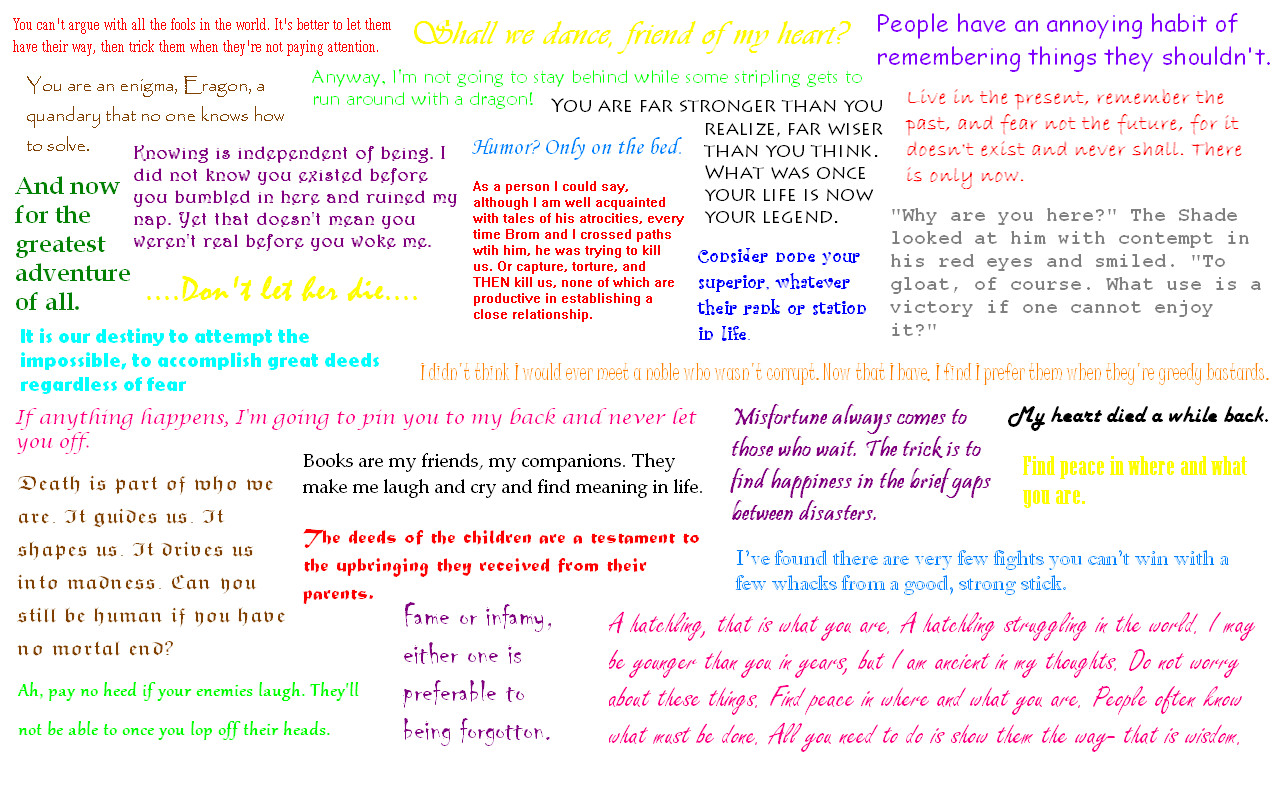 You can't argue with all the fools in the world. It's better to let them
have their way, then trick them when they're not paying attention.
Shall we dance, friend of my heart?
People have an annoying habit of
remembering things they shouldn't.
You are an enigma, Eragon, a
quandary that no one knows how
to solve.
Anyway, I'm not going to stay behind while some stripling gets to
run around with a dragon!
You are far stronger than you
realize, far wiser
than you think.
What was once
your life is now
your legend.
Live in the present, remember the
past, and fear not the future, for it
doesn't exist and never shall. There
is only now.
Knowing is independent of being. I
did not know you existed before
you bumbled in here and ruined my
nap. Yet that doesn't mean you
weren't real before you woke me.
Humor? Only on the bed.
And now
for the
greatest
adventure
of all.
As a person I could say,
although I am well acquainted
with tales of his atrocities, every
time Brom and I crossed paths
wtih him, he was trying to kill
us. Or capture, torture, and
THEN kill us, none of which are
productive in establishing a
close relationship.
"Why are you here?" The Shade
looked at him with contempt in
his red eyes and smiled. "To
gloat, of course. What use is a
victory if one cannot enjoy
it?"
Consider none your
superior, whatever
their rank or station
in life.
....Don't let her die....
It is our destiny to attempt the
impossible, to accomplish great deeds
regardless of fear
I didn't think I would ever meet a noble who wasn't corrupt. Now that I have, I find I prefer them when they're greedy bastards.
If anything happens, I'm going to pin you to my back and never let
you off.
Misfortune always comes to
those who wait. The trick is to
find happiness in the brief gaps
between disasters.
My heart died a while back.
Books are my friends, my companions. They
make me laugh and cry and find meaning in life.
Find peace in where and what
you are.
Death is part of who we
are. It guides us. It
shapes us. It drives us
into madness. Can you
still be human if you have
no mortal end?
The deeds of the children are a testament to
the upbringing they received from their
parents.
I've found there are very few fights you can't win with a
few whacks from a good, strong stick.
Fame or infamy,
either one is
preferable to
being forgotton.
A hatchling, that is what you are. A hatchling struggling in the world. I may
be younger than you in years, but I am ancient in my thoughts. Do not worry
about these things. Find peace in where and what you are. People often know
what must be done. All you need to do is show them the way- that is wisdom.
Ah, pay no heed if your enemies laugh. They'll
not be able to once you lop off their heads.